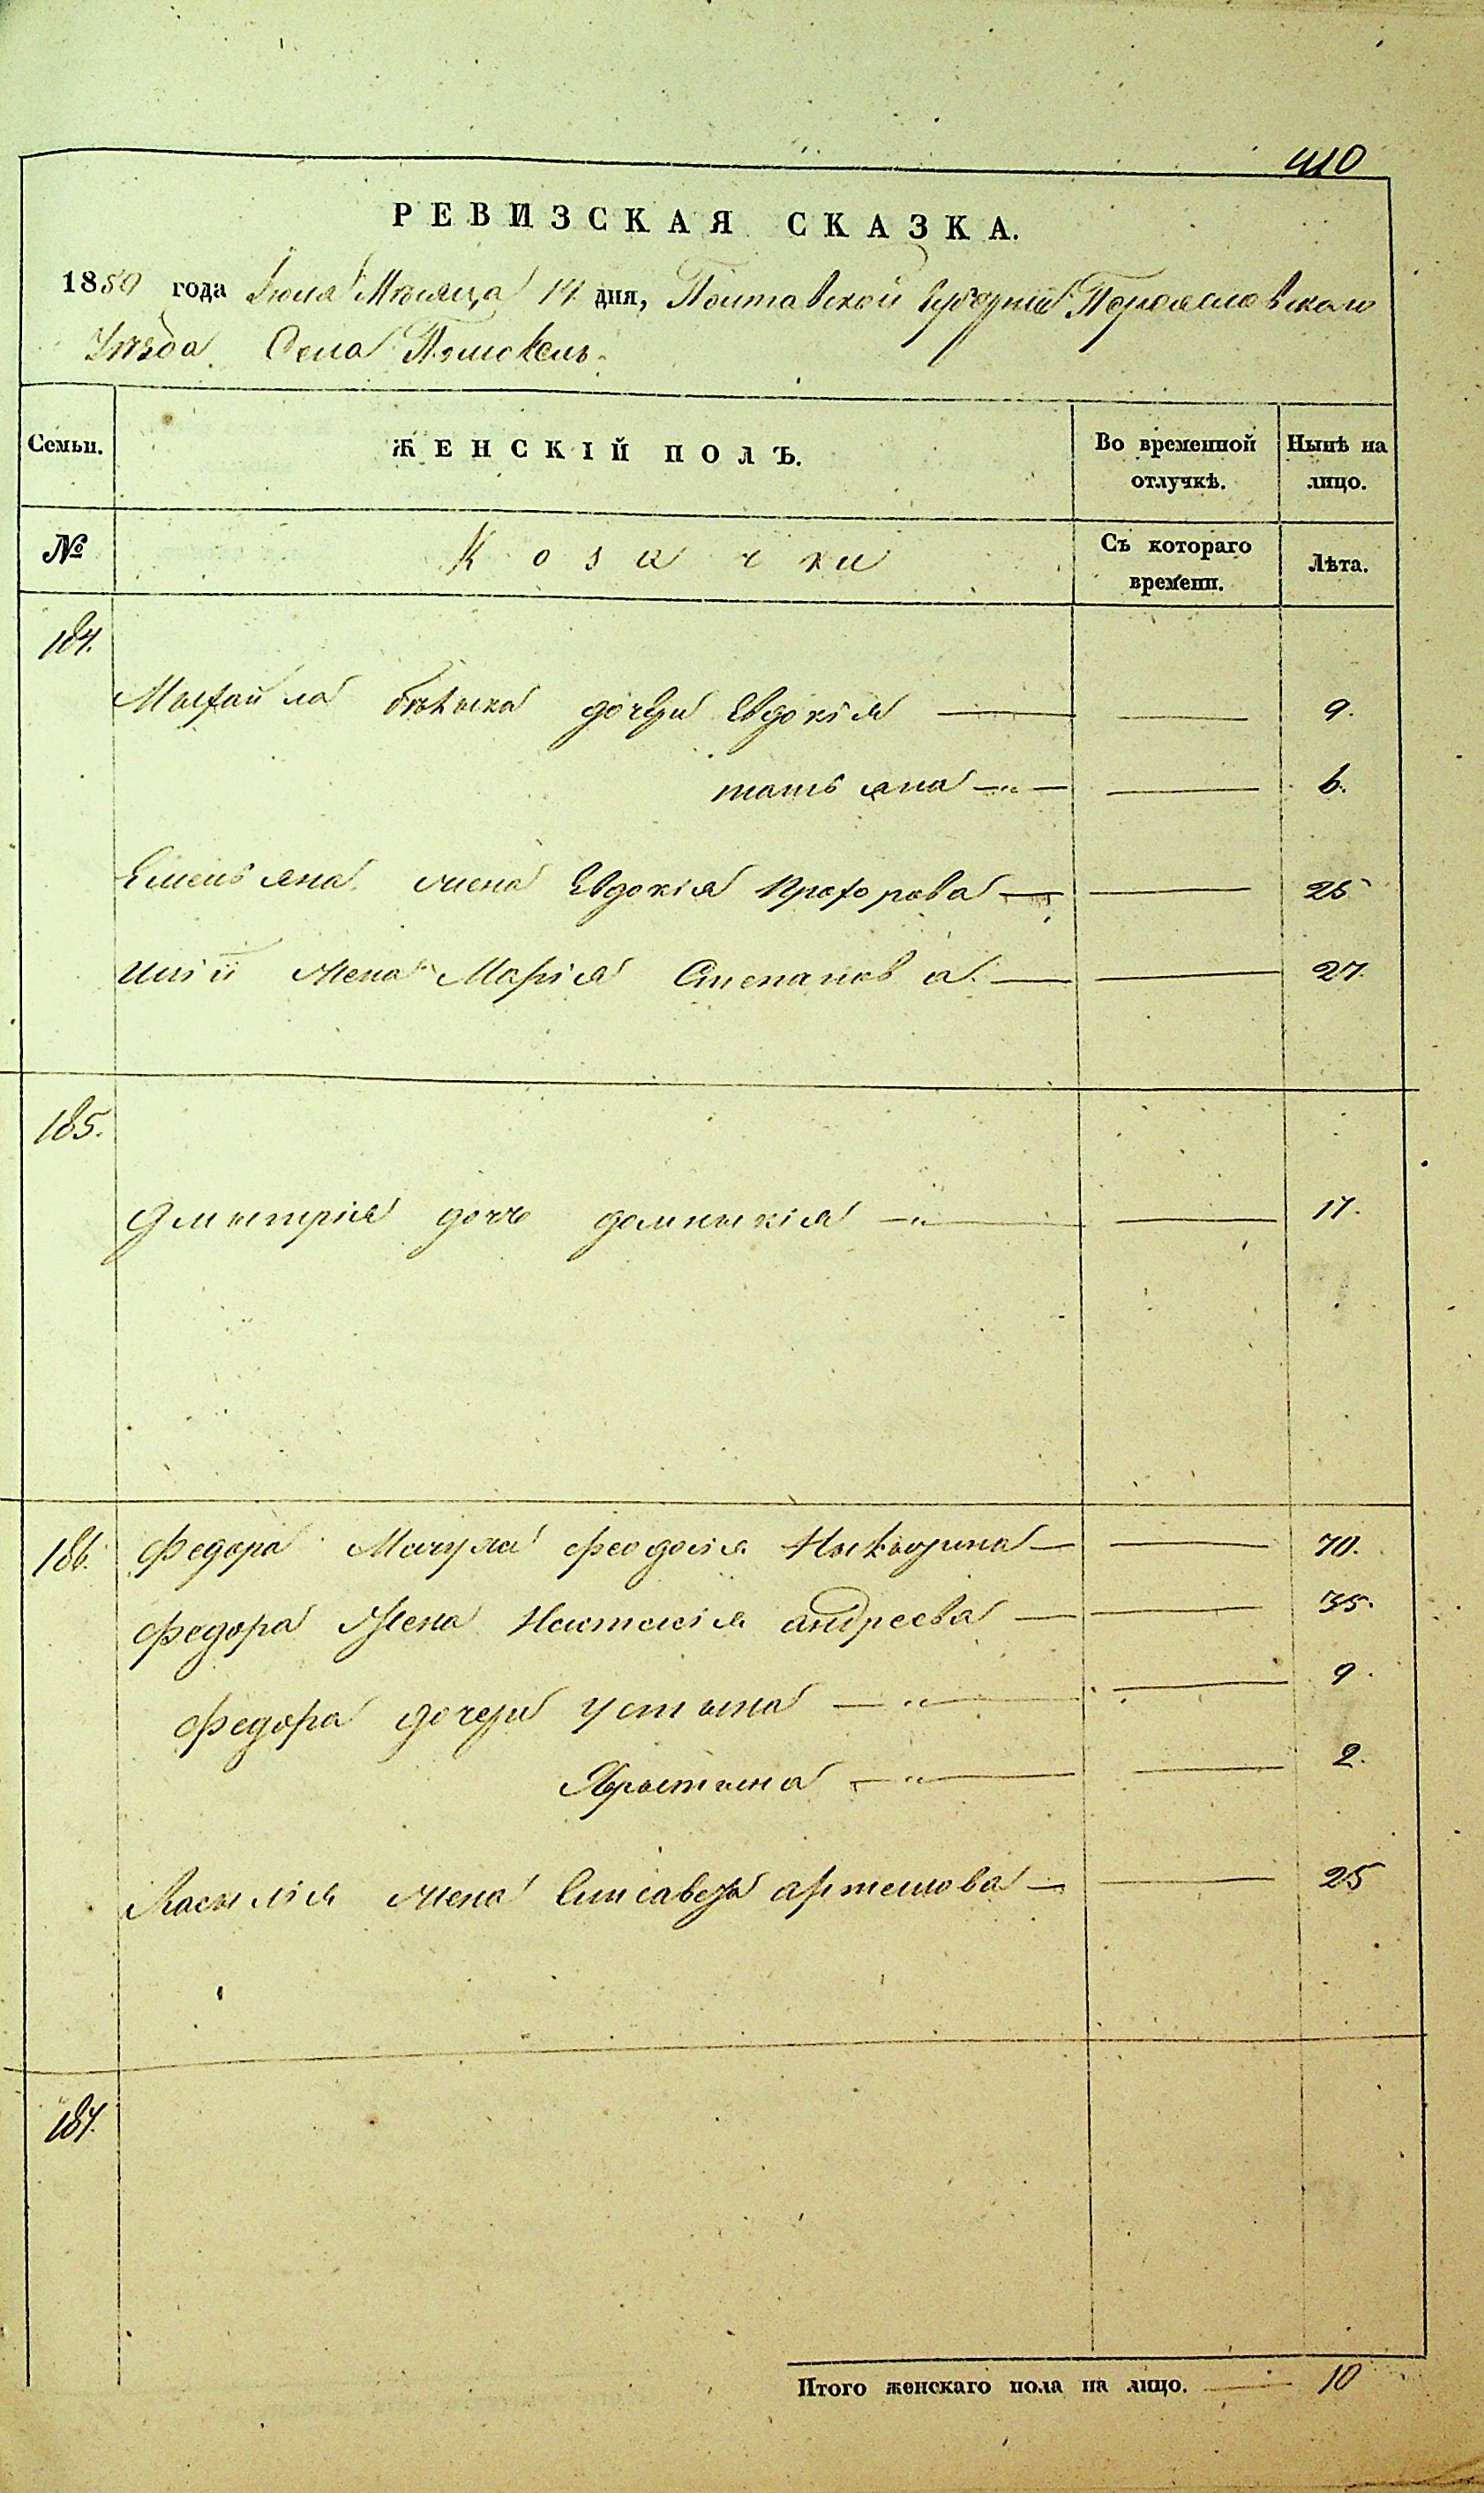 410
РЕВИЗСКАЯ СКАЗКА.
1850 года Июня Месяца 14 дня, Полтавской губернии Переяславского
Уезда Села Помокель.
Семьи. ЖЕНСКІЙ ПОЛЪ. Во временной отлучкѣ. Нынѣ на лицо.
№ Козачки Съ котораго времени. Лѣта.
184.
Михайла дочери Евдокія — — 9.
татьяна — — 6.
Емельяна жена Евдокія Прохорова — — 25
Иліи жена Марія Степанова. — — 27.
185.
Дмытрія дочь домныкія — — 17.
186. Федора Мачуха феодосія — — 70.
федора жена Наталія андреева — — 35.
федора дочери устына — — 9.
Хрыстына — — 2.
Василія жена Елисавета артемова — — 25
187.
Итого женскаго пола на лицо. — 10